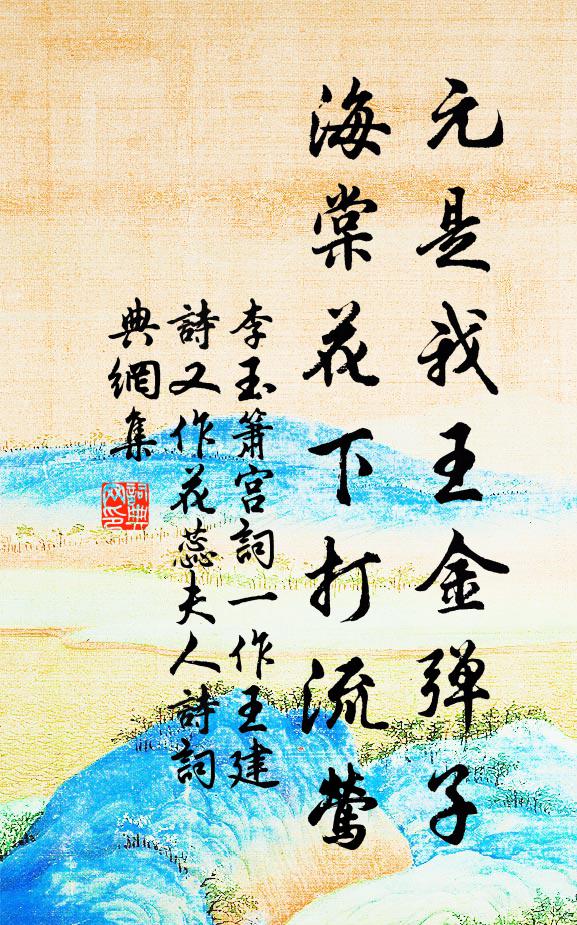 元是我王金弹子
海棠花下打流莺
李玉箫宫詞一作王建
詩又作花蕊夫人詩詞
典網集
詞典